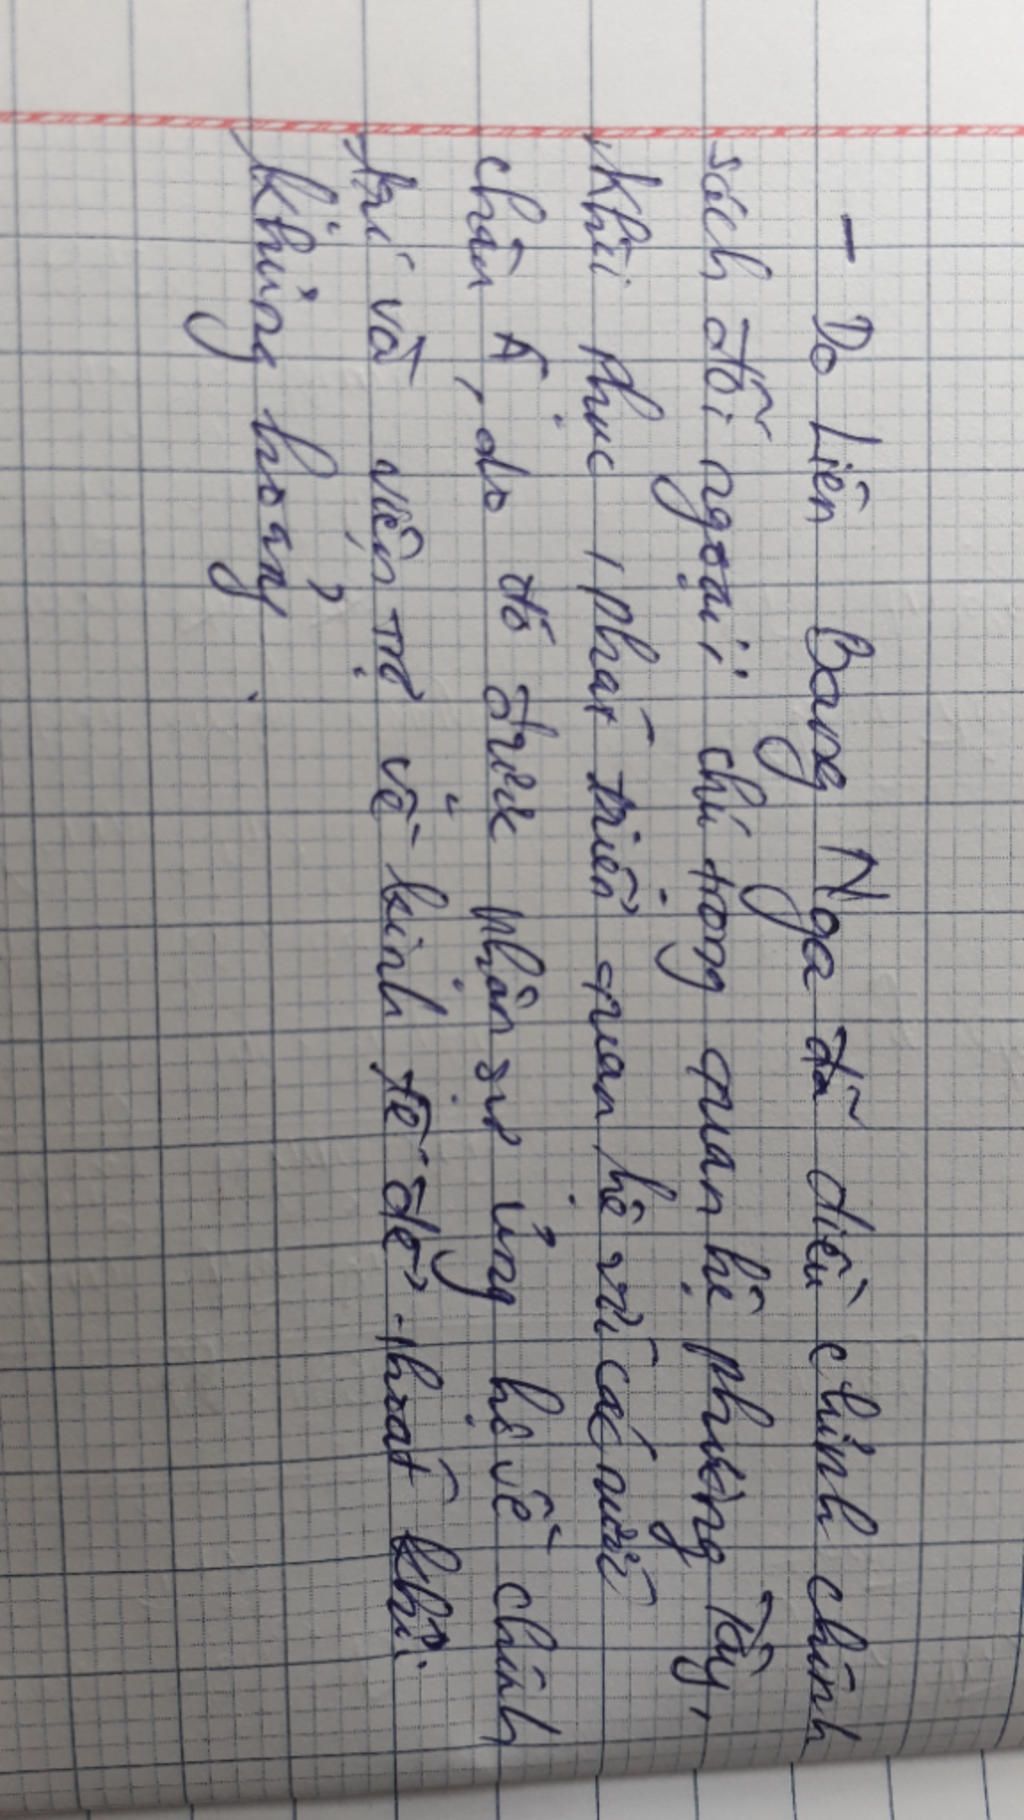 - Do Liên Bang Nga đã điều chỉnh chính
sách đối ngoại: chú trọng quan hệ phương Tây,
khôi phục, phát triển quan hệ với các nước
châu Á, do đó được nhận sự ủng hộ về chính
trị và viện trợ về kinh tế để thoát khỏi
khủng hoảng.